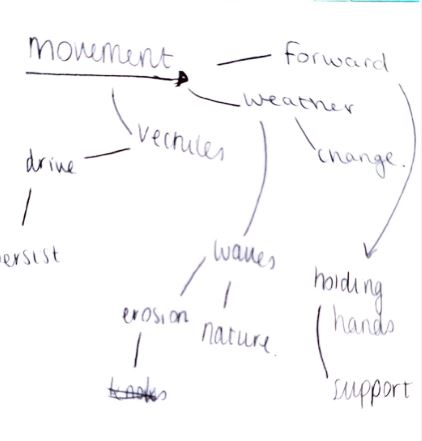 movement
forward
weather
vechiles
change.
drive
ersist
waves
holding
hands
erosion
nature.
support